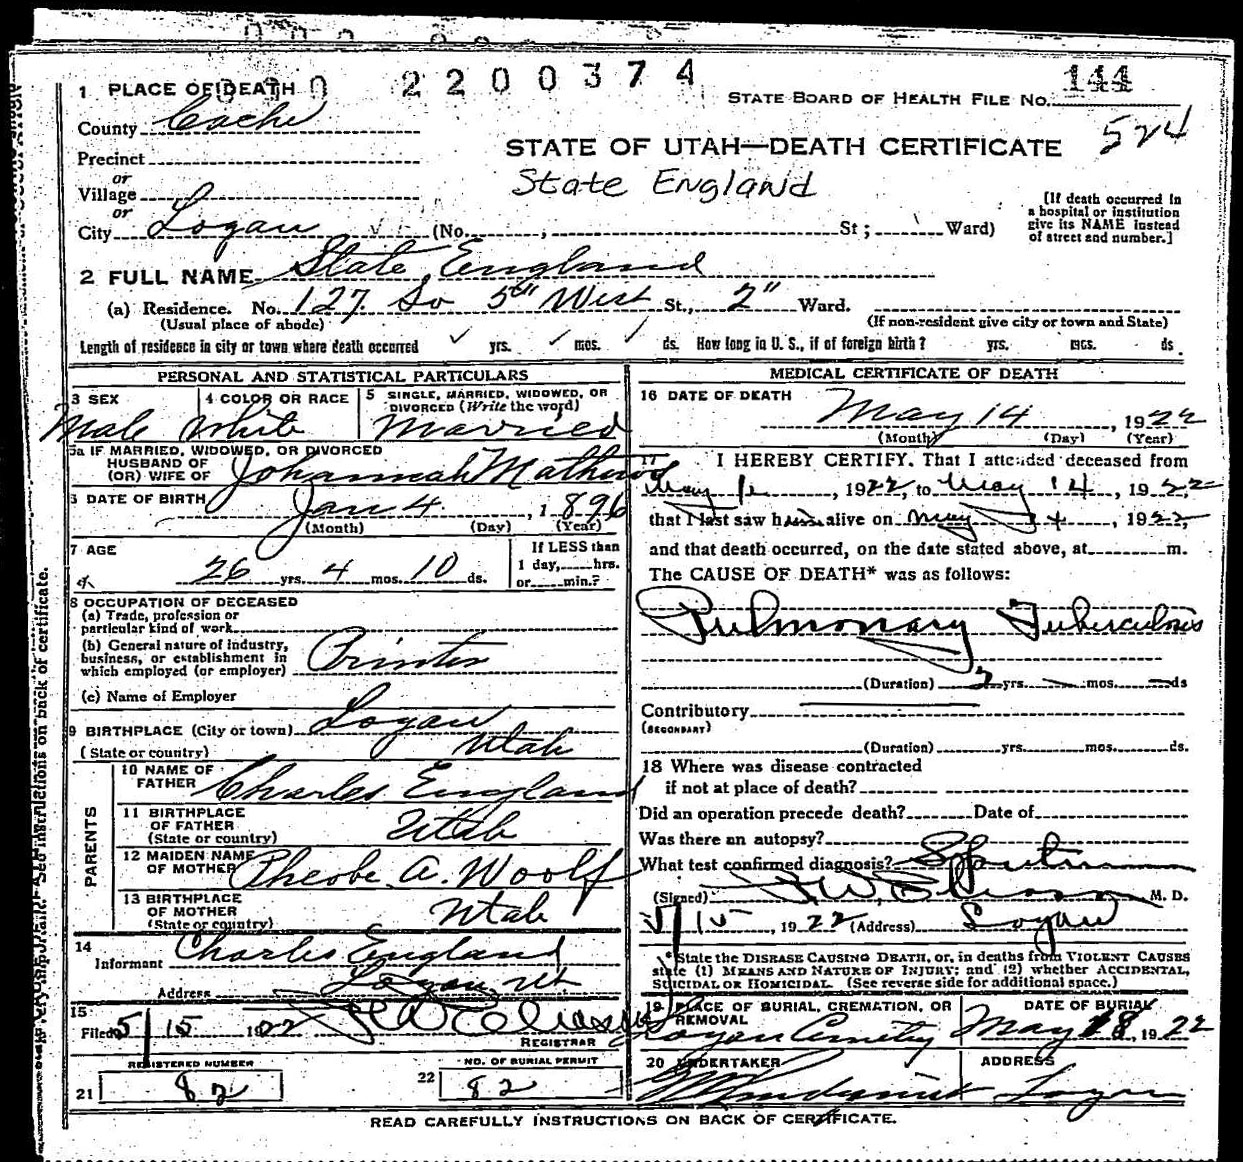 2200374
144
1 PLACE OF DEATH
STATE BOARD OF HEALTH FILE No.
County Cache
524
STATE OF UTAH—DEATH CERTIFICATE
Precinct
State England
or
Village
or
City Logan (No. , St ; Ward)
[If death occurred in
a hospital or institution
give its NAME instead
of street and number.]
2 FULL NAME State England
(a) Residence. No. 127 So 5" West St., 2" Ward.
(Usual place of abode) (If non-resident give city or town and State)
Length of residence in city or town where death occurred yrs. mos. ds. How long in U. S., if of foreign birth? yrs. mos. ds.
PERSONAL AND STATISTICAL PARTICULARS
3 SEX 4 COLOR OR RACE 5 SINGLE, MARRIED, WIDOWED, OR
DIVORCED (Write the word)
Male White Married
5a IF MARRIED, WIDOWED, OR DIVORCED
HUSBAND OF
(OR) WIFE OF Johannah Mathews
6 DATE OF BIRTH Jan 4 , 1896
(Month) (Day) (Year)
7 AGE
26 yrs. 4 mos. 10 ds.
If LESS than
1 day, hrs.
or min.?
8 OCCUPATION OF DECEASED
(a) Trade, profession or
particular kind of work
(b) General nature of industry,
business, or establishment in
which employed (or employer) Printer
(c) Name of Employer
9 BIRTHPLACE (City or town) Logan
(State or country) Utah
PARENTS
10 NAME OF
FATHER Charles England
11 BIRTHPLACE
OF FATHER
(State or country) Utah
12 MAIDEN NAME
OF MOTHER Pheobe A. Woolf
13 BIRTHPLACE
OF MOTHER
(State or country) Utah
14
Informant Charles England
Address Logan, Ut
15
Filed 5/15 1922
REGISTRAR
REGISTERED NUMBER NO. OF BURIAL PERMIT
21 82 22 82
MEDICAL CERTIFICATE OF DEATH
16 DATE OF DEATH
May 14 , 1922
(Month) (Day) (Year)
17 I HEREBY CERTIFY, That I attended deceased from
May , 1922, to May 14 , 1922,
that I last saw him alive on May 14 , 1922,
and that death occurred, on the date stated above, at m.
The CAUSE OF DEATH* was as follows:
Pulmonary Tuberculosis
(Duration) 2 yrs. mos. ds
Contributory
(SECONDARY)
(Duration) yrs. mos. ds.
18 Where was disease contracted
if not at place of death?
Did an operation precede death? Date of
Was there an autopsy?
What test confirmed diagnosis? Sputum
(Signed) M. D.
5/15 , 1922 (Address) Logan
*State the DISEASE CAUSING DEATH, or, in deaths from VIOLENT CAUSES
state (1) MEANS AND NATURE OF INJURY; and (2) whether ACCIDENTAL,
SUICIDAL OR HOMICIDAL. (See reverse side for additional space.)
19 PLACE OF BURIAL, CREMATION, OR
REMOVAL
Logan Cemetery
DATE OF BURIAL
May 18, 1922
20 UNDERTAKER ADDRESS
Logan
READ CAREFULLY INSTRUCTIONS ON BACK OF CERTIFICATE.
See instructions on back of certificate.